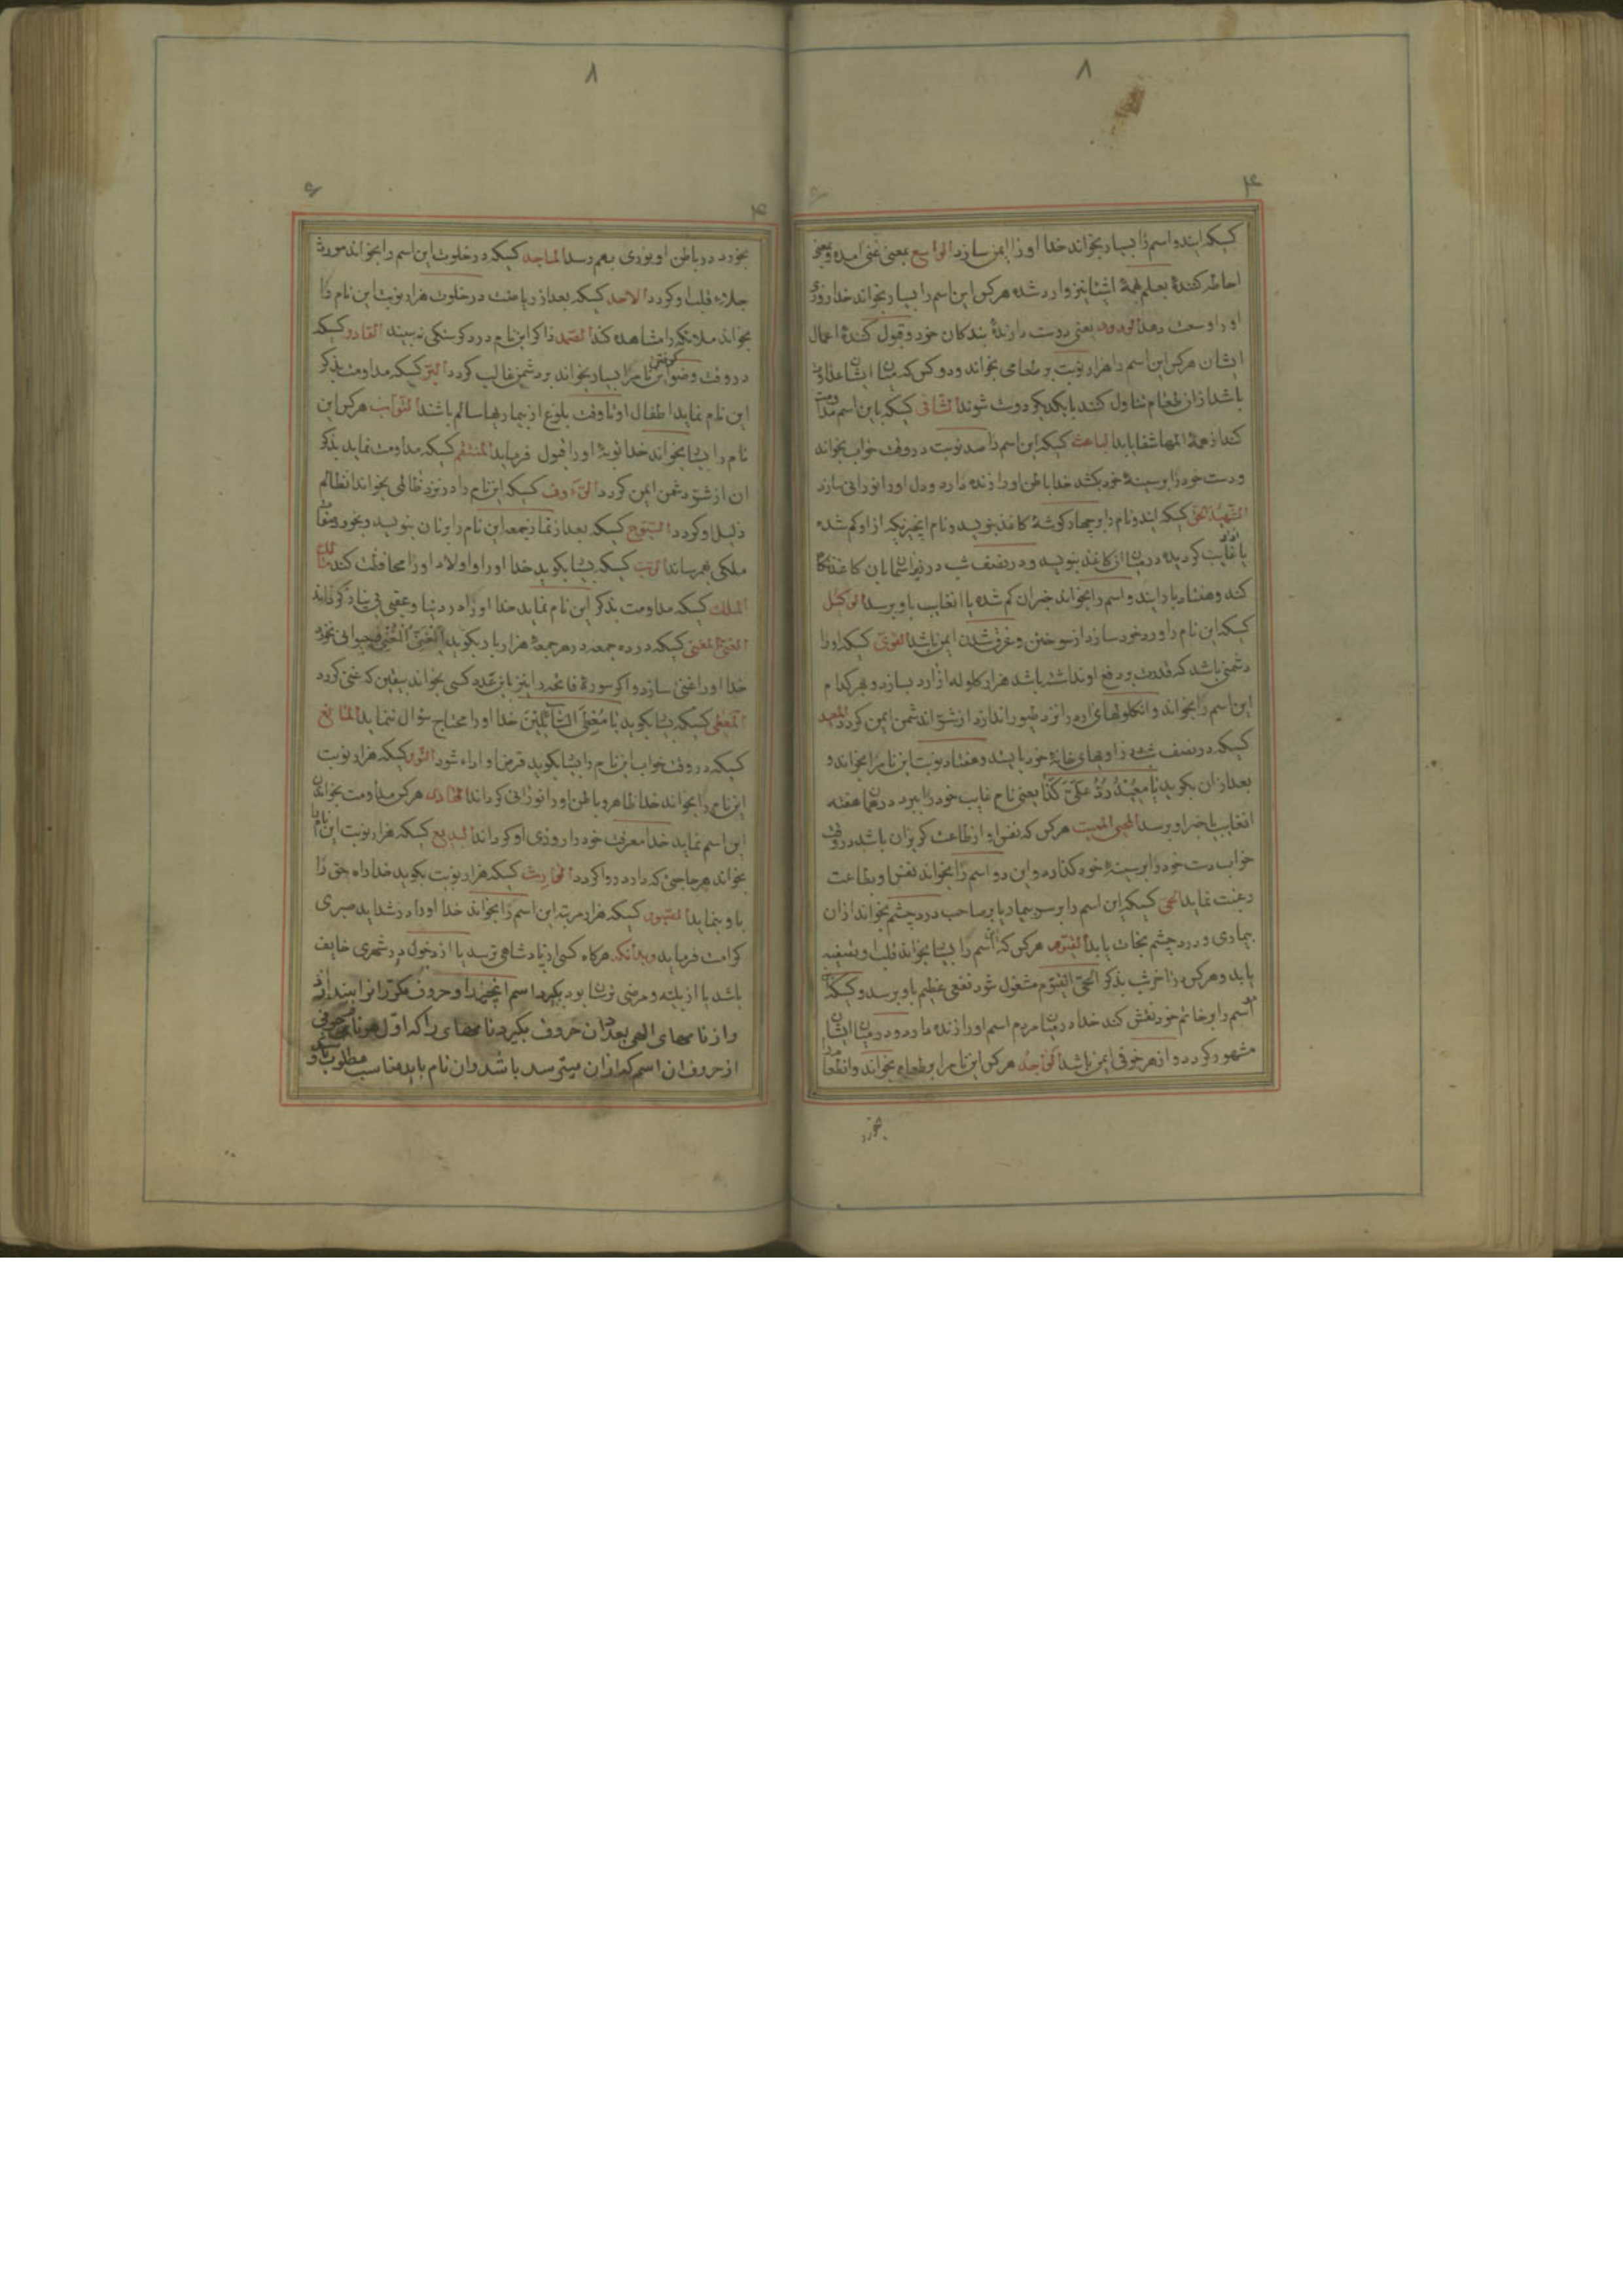 ۸
۴
کسیکه ایندو اسم را بسیار بخواند خدا او را ایمن سازد الواسع بمعنی غنی امده و بمعنی
احاطه کنندهٔ بعلم همهٔ اشیا نیز وارد شده هرکس این اسم را بسیار بخواند خدا روزی
او را وسعت دهد الودود یعنی دوست دارندهٔ بندکان خود و قبول کنندهٔ اعمال
ایشان هرکس این اسم را هزار نوبت بر طعامی بخواند و دو کس که میان ایشان عداوت
باشد ازان طعام تناول کنند با یکدیکر دوست شوند الشافی کسیکه باین اسم مداومت
کند از همهٔ المها شفا یابد الباعث کسیکه این اسم را صد نوبت در وقت خواب بخواند
و دست خود را بر سینهٔ خود بکشد خدا باطن او را زنده دارد و دل او را نورانی سازد
الشهید الحق کسیکه ایندو نام را بر چهار کوشهٔ کاغذ بنویسد و نام انچیزیکه از او کم شده
یا غایب کردیده در میان آن کاغذ بنویسد و در نصف شب در زیر اسمان بان کاغذ نکاه
کند و هفتاد بار ایندو اسم را بخواند خبران کم شده یا انغایب باو برسد الوکیل
کسیکه این نام را ورد خود سازد از سوختن و غرق شدن ایمن باشد القوی کسیکه او را
دشمنی باشد که قدرت بر دفع او نداشته باشد هزار کلوله از ارد بسازد و بهر کدام
این اسم را بخواند و انکلولهای ارد را نزد طیور اندازد از شر ان دشمن ایمن کردد المعید
کسیکه در نصف شب در زاویهای خانهٔ خود بایستد و هفتاد نوبت این نام را بخواند و
بعد ازان بکوید یا مُعیدُ رُدَّ عَلَیَّ کَذا یعنی نام غایب خود را ببرد در همان هفته
انغایب یا خبر او برسد المحیی الممیت هرکس که نفس او از طاعت کریزان باشد در وقت
خواب دست خود را بر سینهٔ خود کذارد و این دو اسم را بخواند نفس او بطاعت
رغبت نماید الحی کسیکه این اسم را بر سر بیمار یا بر صاحب درد چشم بخواند ازان
بیماری و درد چشم نجات یابد القیوم هرکس که این اسم را بسیار بخواند قلب او تصفیه
یابد و هرکس در اخر شب بذکر الحی القیوم مشغول شود نفعی عظیم باو برسد و کسیکه
اسم را بر خاتم خود نقش کند خدا در میان مردم اسم او را زنده دارد و در میان ایشان
مشهور کردد و از هر خوفی ایمن باشد الواجد هرکس این نام را بر طعام بخواند و انطعام را
بخورد
۸
۴
بخورد در باطن او نوری بهم رسد الماجد کسیکه در خلوت این اسم را بخواند مورث
جلاء قلب او کردد الاحد کسیکه بعد از ریاضت در خلوت هزار نوبت این نام را
بخواند ملائکه را مشاهده کند الصمد ذاکر این نام درد کرسنکی نه بیند القادر کسیکه
در وقت وضو کرفتن این نام را بسیار بخواند بر دشمن غالب کردد البرّ کسیکه مداومت بذکر
این نام نماید اطفال او تا وقت بلوغ از بیماریها سالم باشند التواب هرکس این
نام را بسیار بخواند خدا توبهٔ او را قبول فرماید المنتقم کسیکه مداومت نماید بذکر
ان از شر دشمن ایمن کردد الرؤف کسیکه این نام را در نزد ظالمی بخواند انظالم
ذلیل او کردد السبوح کسیکه بعد از نماز جمعه این نام را بر نان بنویسد و بخورد صفات
ملکی بهم رساند الرب کسیکه بسیار بکوید خدا او را و اولاد او را محافظت کند مالک
الملک کسیکه مداومت بذکر این نام نماید خدا او را در دنیا و عقبی بی نیاز کرداند
الغنی المغنی کسیکه در ده جمعه در هر جمعهٔ هزار بار بکوید الغنی المغنی و حیوانی نخورد
خدا او را غنی سازد و اکر سورهٔ فاتحه را نیز باین عدد کسی بخواند بیقین که غنی کردد
المعطی کسیکه بسیار بکوید یا مُعطِیَ السّائلینَ خدا او را محتاج سؤال ننماید المانع
کسیکه در وقت خواب این نام را بسیار بکوید قرض او اداء شود النور کسیکه هزار نوبت
این نام را بخواند خدا ظاهر و باطن او را نورانی کرداند الهادی هرکس مداومت بخواندن
این اسم نماید خدا معرفت خود را روزی او کرداند البدیع کسیکه هزار نوبت این نام را
بخواند هر حاجتی که دارد روا کردد الوارث کسیکه هزار نوبت بکوید خدا راه حق را
باو بنماید الصبور کسیکه هزار مرتبه این اسم را بخواند خدا او را در شداید صبری
کرامت فرماید و بدانکه هرکاه کسی از پادشاهی ترسد یا از دخول در شهری خایف
باشد یا از بلیه و مرضی ترسان بود بکیرد اسم انچیز را و حروف مکرر انرا بیندازد
و از نامهای الهی بعدد ان حروف بکیرد نامهای را که اول هر نامی حرفی
از حروف ان اسم که ازان میترسد باشد و ان نام باید مناسب مطلوب باشد و